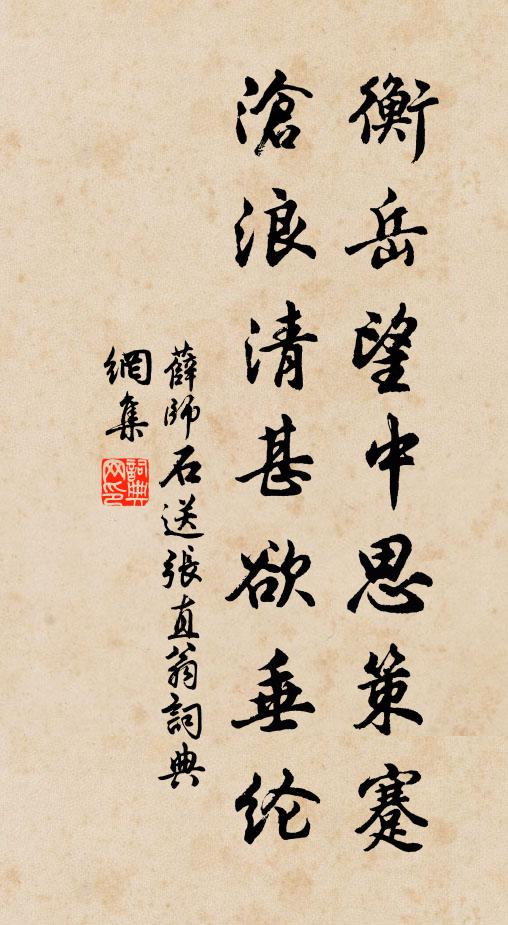 衡岳望中思策蹇
滄浪清甚欲垂纶
薛師石送張直翁詞典
網集
詞典
网印